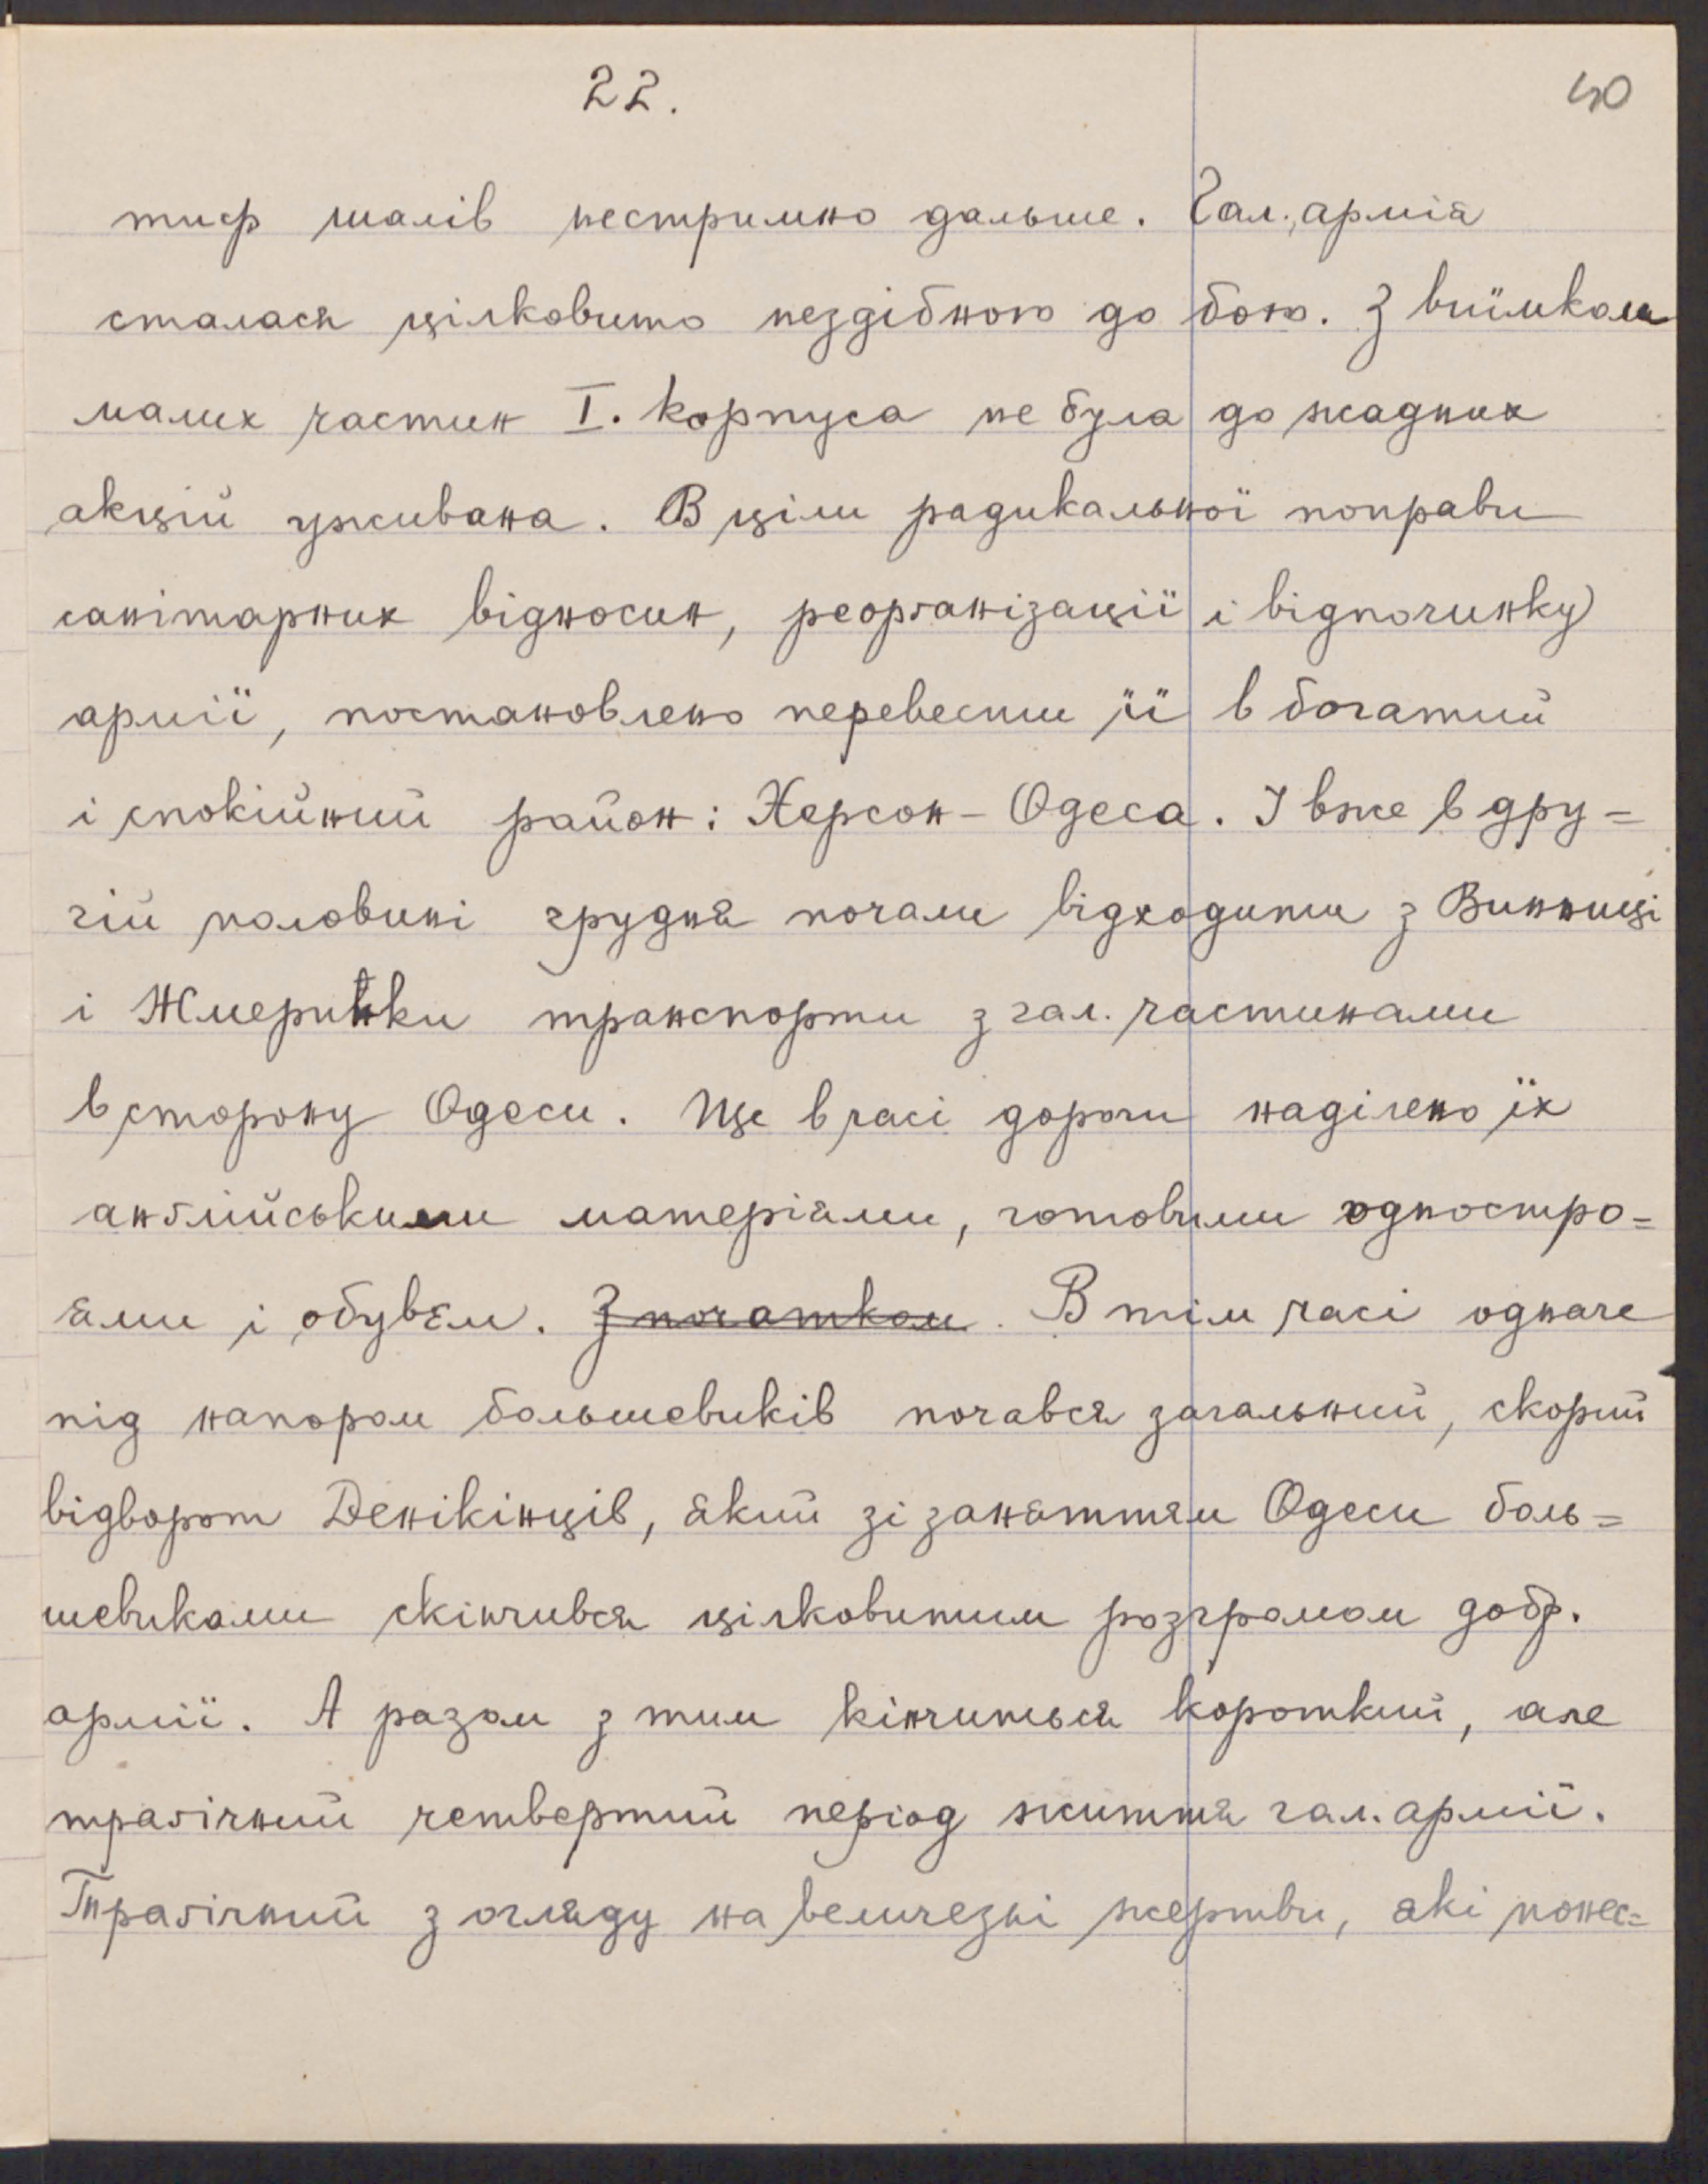 22.
40
тиф шалів нестримно дальше. Гал. армія
сталася цілковито нездібною до бою. З виїмком
малих частин I. корпуса не була до жадних
акцій уживана. В ціли радикальної поправи
санітарних відносин, реорганізації і відпочинку
армії, постановлено перевести її в богатий
і спокійний район: Херсон - Одеса. І вже в дру=
гій половині грудня почали відходити з Винниці
і Жмеринки транспорти з гал. частинами
в сторону Одеси. Ще в часі дороги наділено їх
анґлійськими матеріями, готовими одностро=
ями і обувєм. ~~З початком~~. В тім часі одначе
під напором большевиків почався загальний, скорий
відворот Денікінців, який зі занаттям Одеси боль=
шевиками скінчився цілковитим розгромом добр.
армії. А разом з тим кінчиться короткий, але
траґічний четвертий період життя гал. армії.
Траґічний з огляду на величезні жертви, які понес=